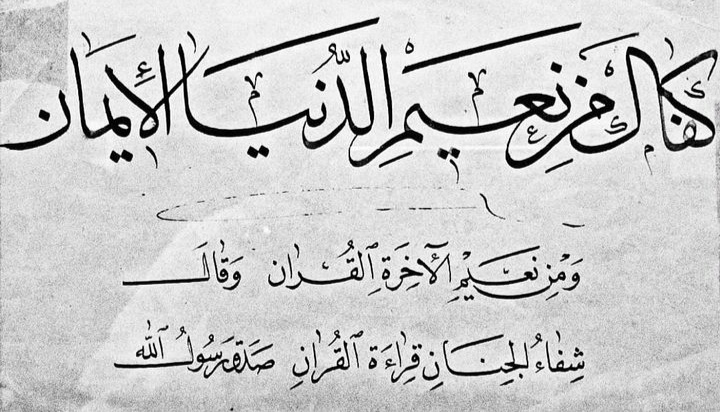 كفاك من نعيم الدنيا الإيمان
وَمِنْ نَعِيْمِ الْآخِرَةِ الْقُرْانِ وَقَالَ
شِفَاءُ الْجِنَانِ قِرَاءَةُ الْقُرْانِ صَدَقَ رَسُولُ اللهِ